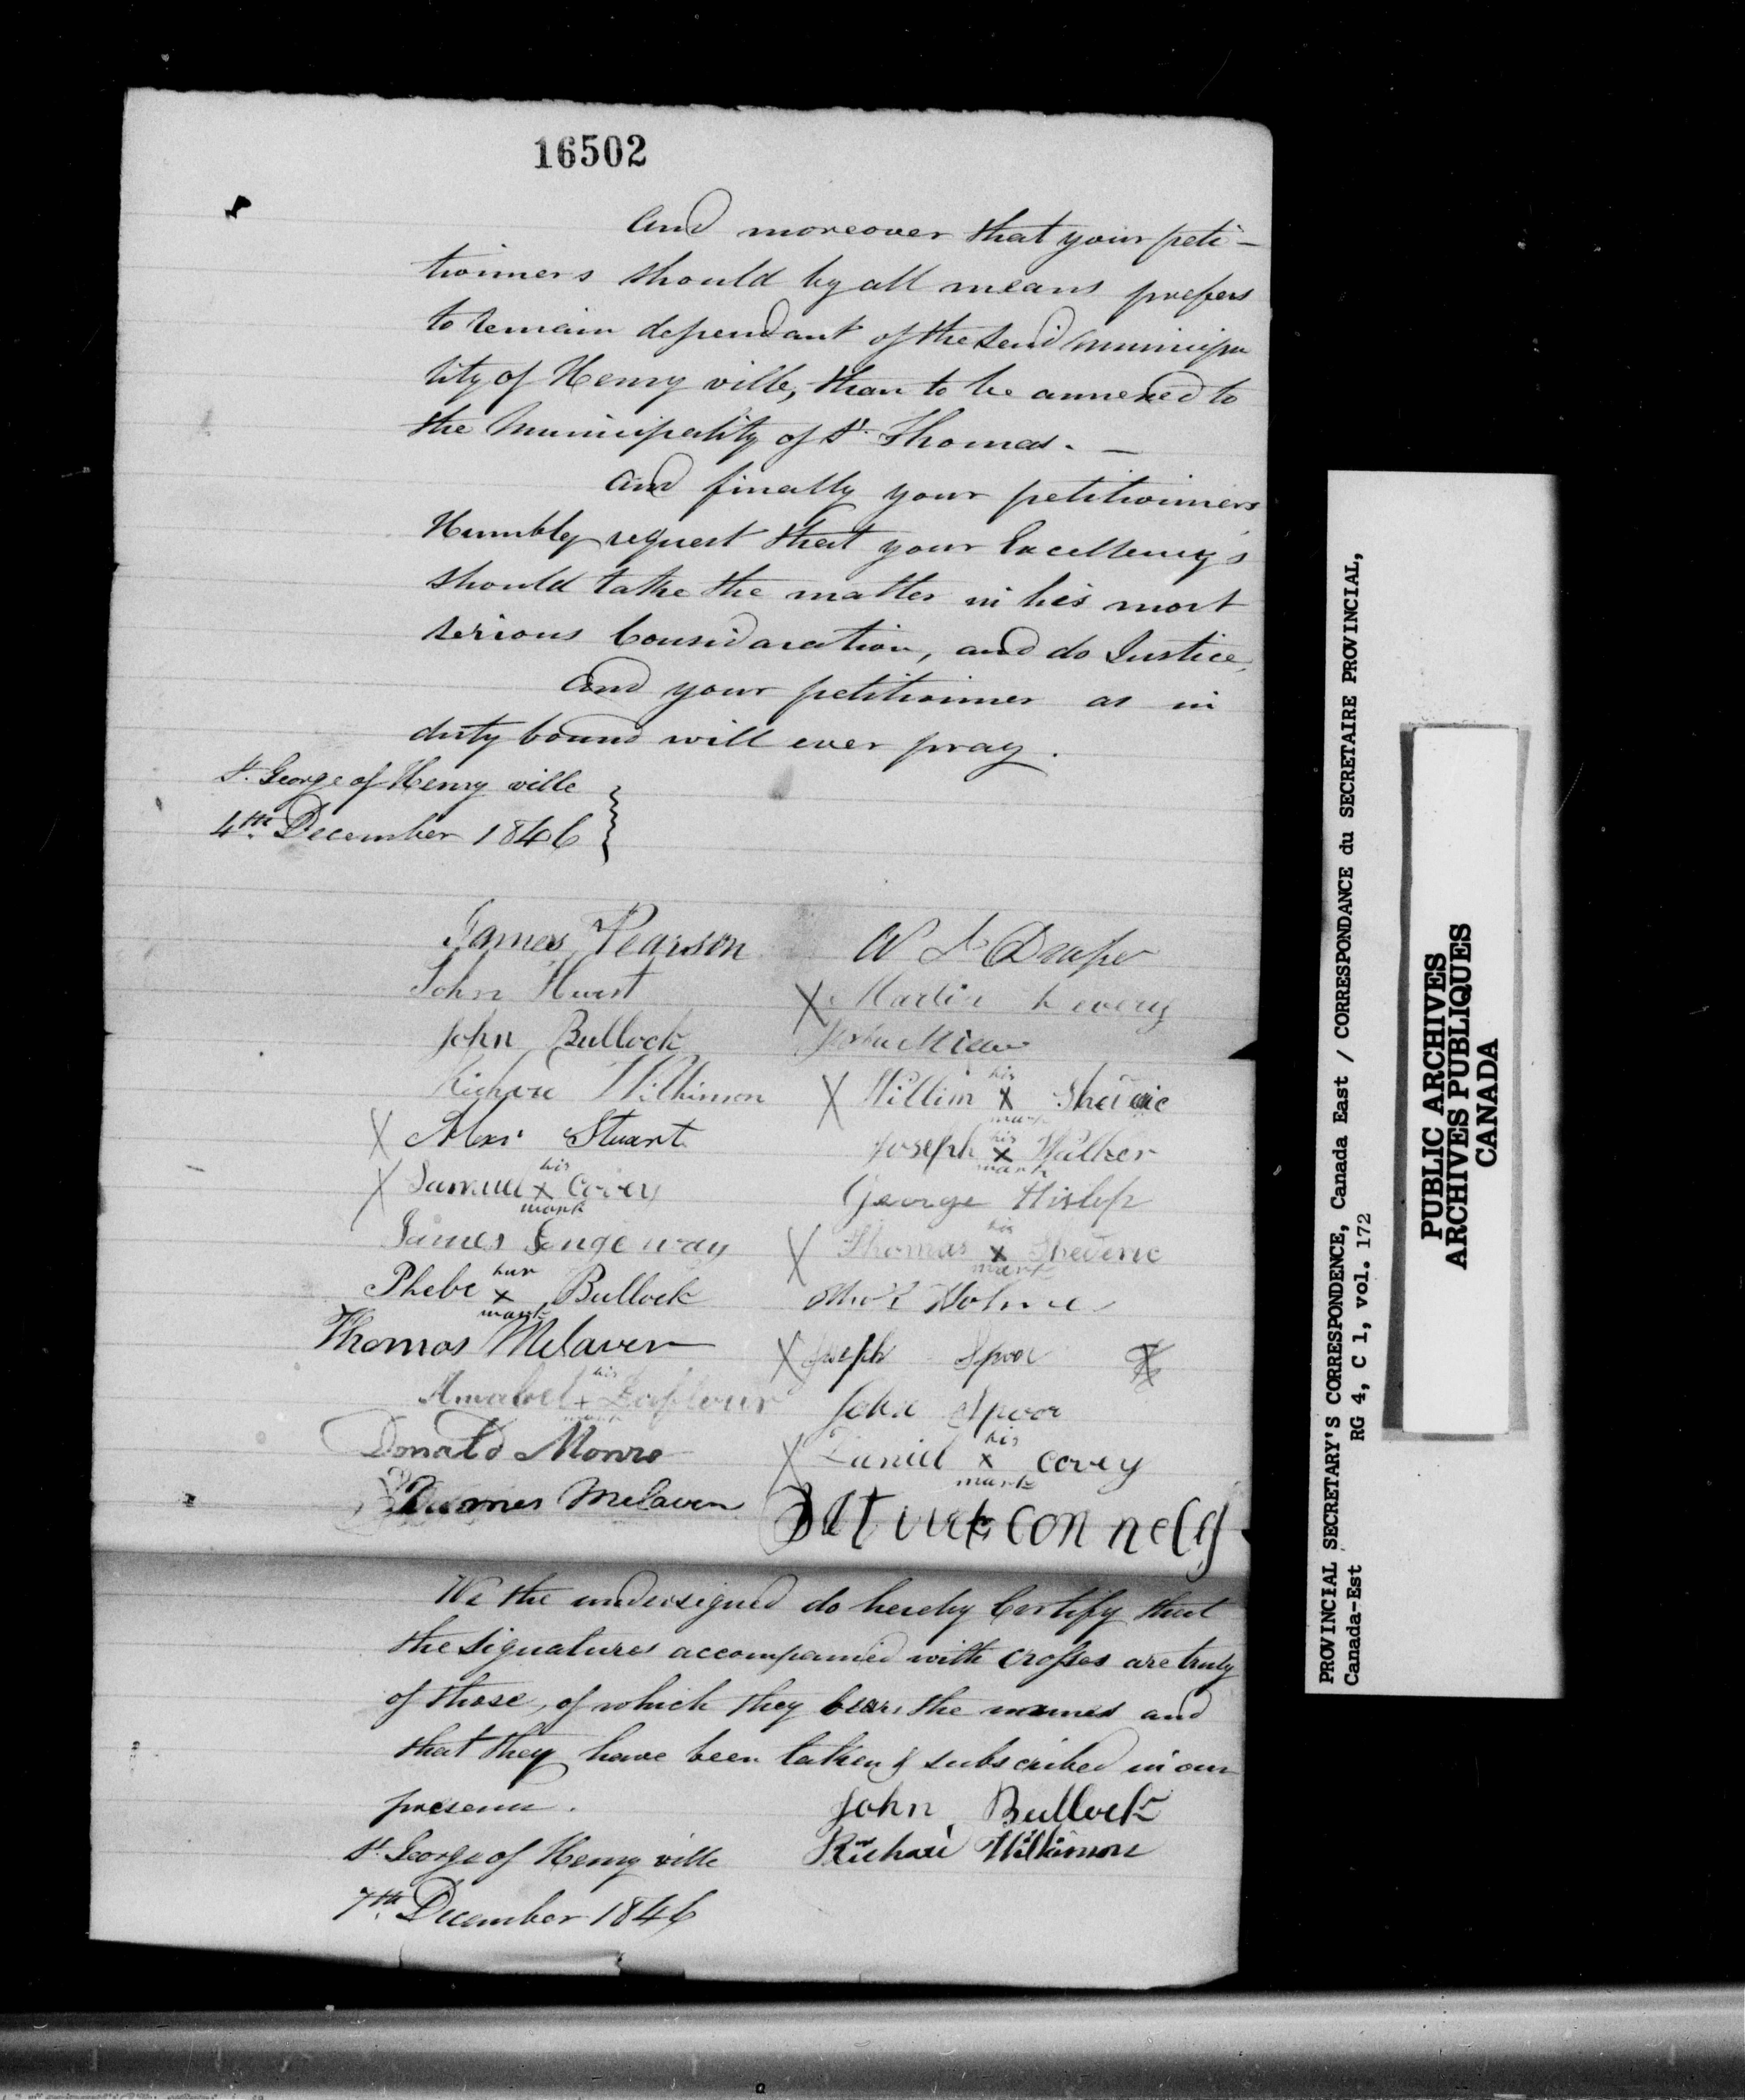 16502
And moreover that your peti-
tionners should by all means prefers
to remain dependant of the said municipa
lity of Henry ville, than to be annexed to
the Municipality of St. Thomas. —
And finally your petitionners
Humbly request that your Excellency's
should take the matter in his most
serious Considaration, and do Justice,
And your petitionner as in
duty bound will ever pray.
St. George of Henry ville
4th December 1846
James Pearson
John Hurst
John Bullock
Richard Wilkinson
X Alexr Stuart
his
X Samuel X Covey
mark
James Congeway
her
Phebe X Bullock
mark
Thomas Melaven
his
Amabel + Lafleur
mark
Donald Monro
James Melaven
W L Draper
X Martin
his
X Willim X
mark
his
Joseph X Walker
mark
George Hislop
his
X Thomas X
mark
Holmes
X Joseph Spoor X
John Spoor
his
X Daniel X Covey
mark
connely
We the undersigned do hereby Certify that
the signatures accompanied with crosses are truly
of those, of which they bears the names and
that they have been taken & subscribed in our
presence.
John Bullock
Richard Wilkinson
St. George of Henry ville
7th December 1846
PROVINCIAL SECRETARY'S CORRESPONDENCE, Canada East / CORRESPONDANCE du SECRETAIRE PROVINCIAL,
Canada-Est RG 4, C 1, vol. 172
PUBLIC ARCHIVES
ARCHIVES PUBLIQUES
CANADA